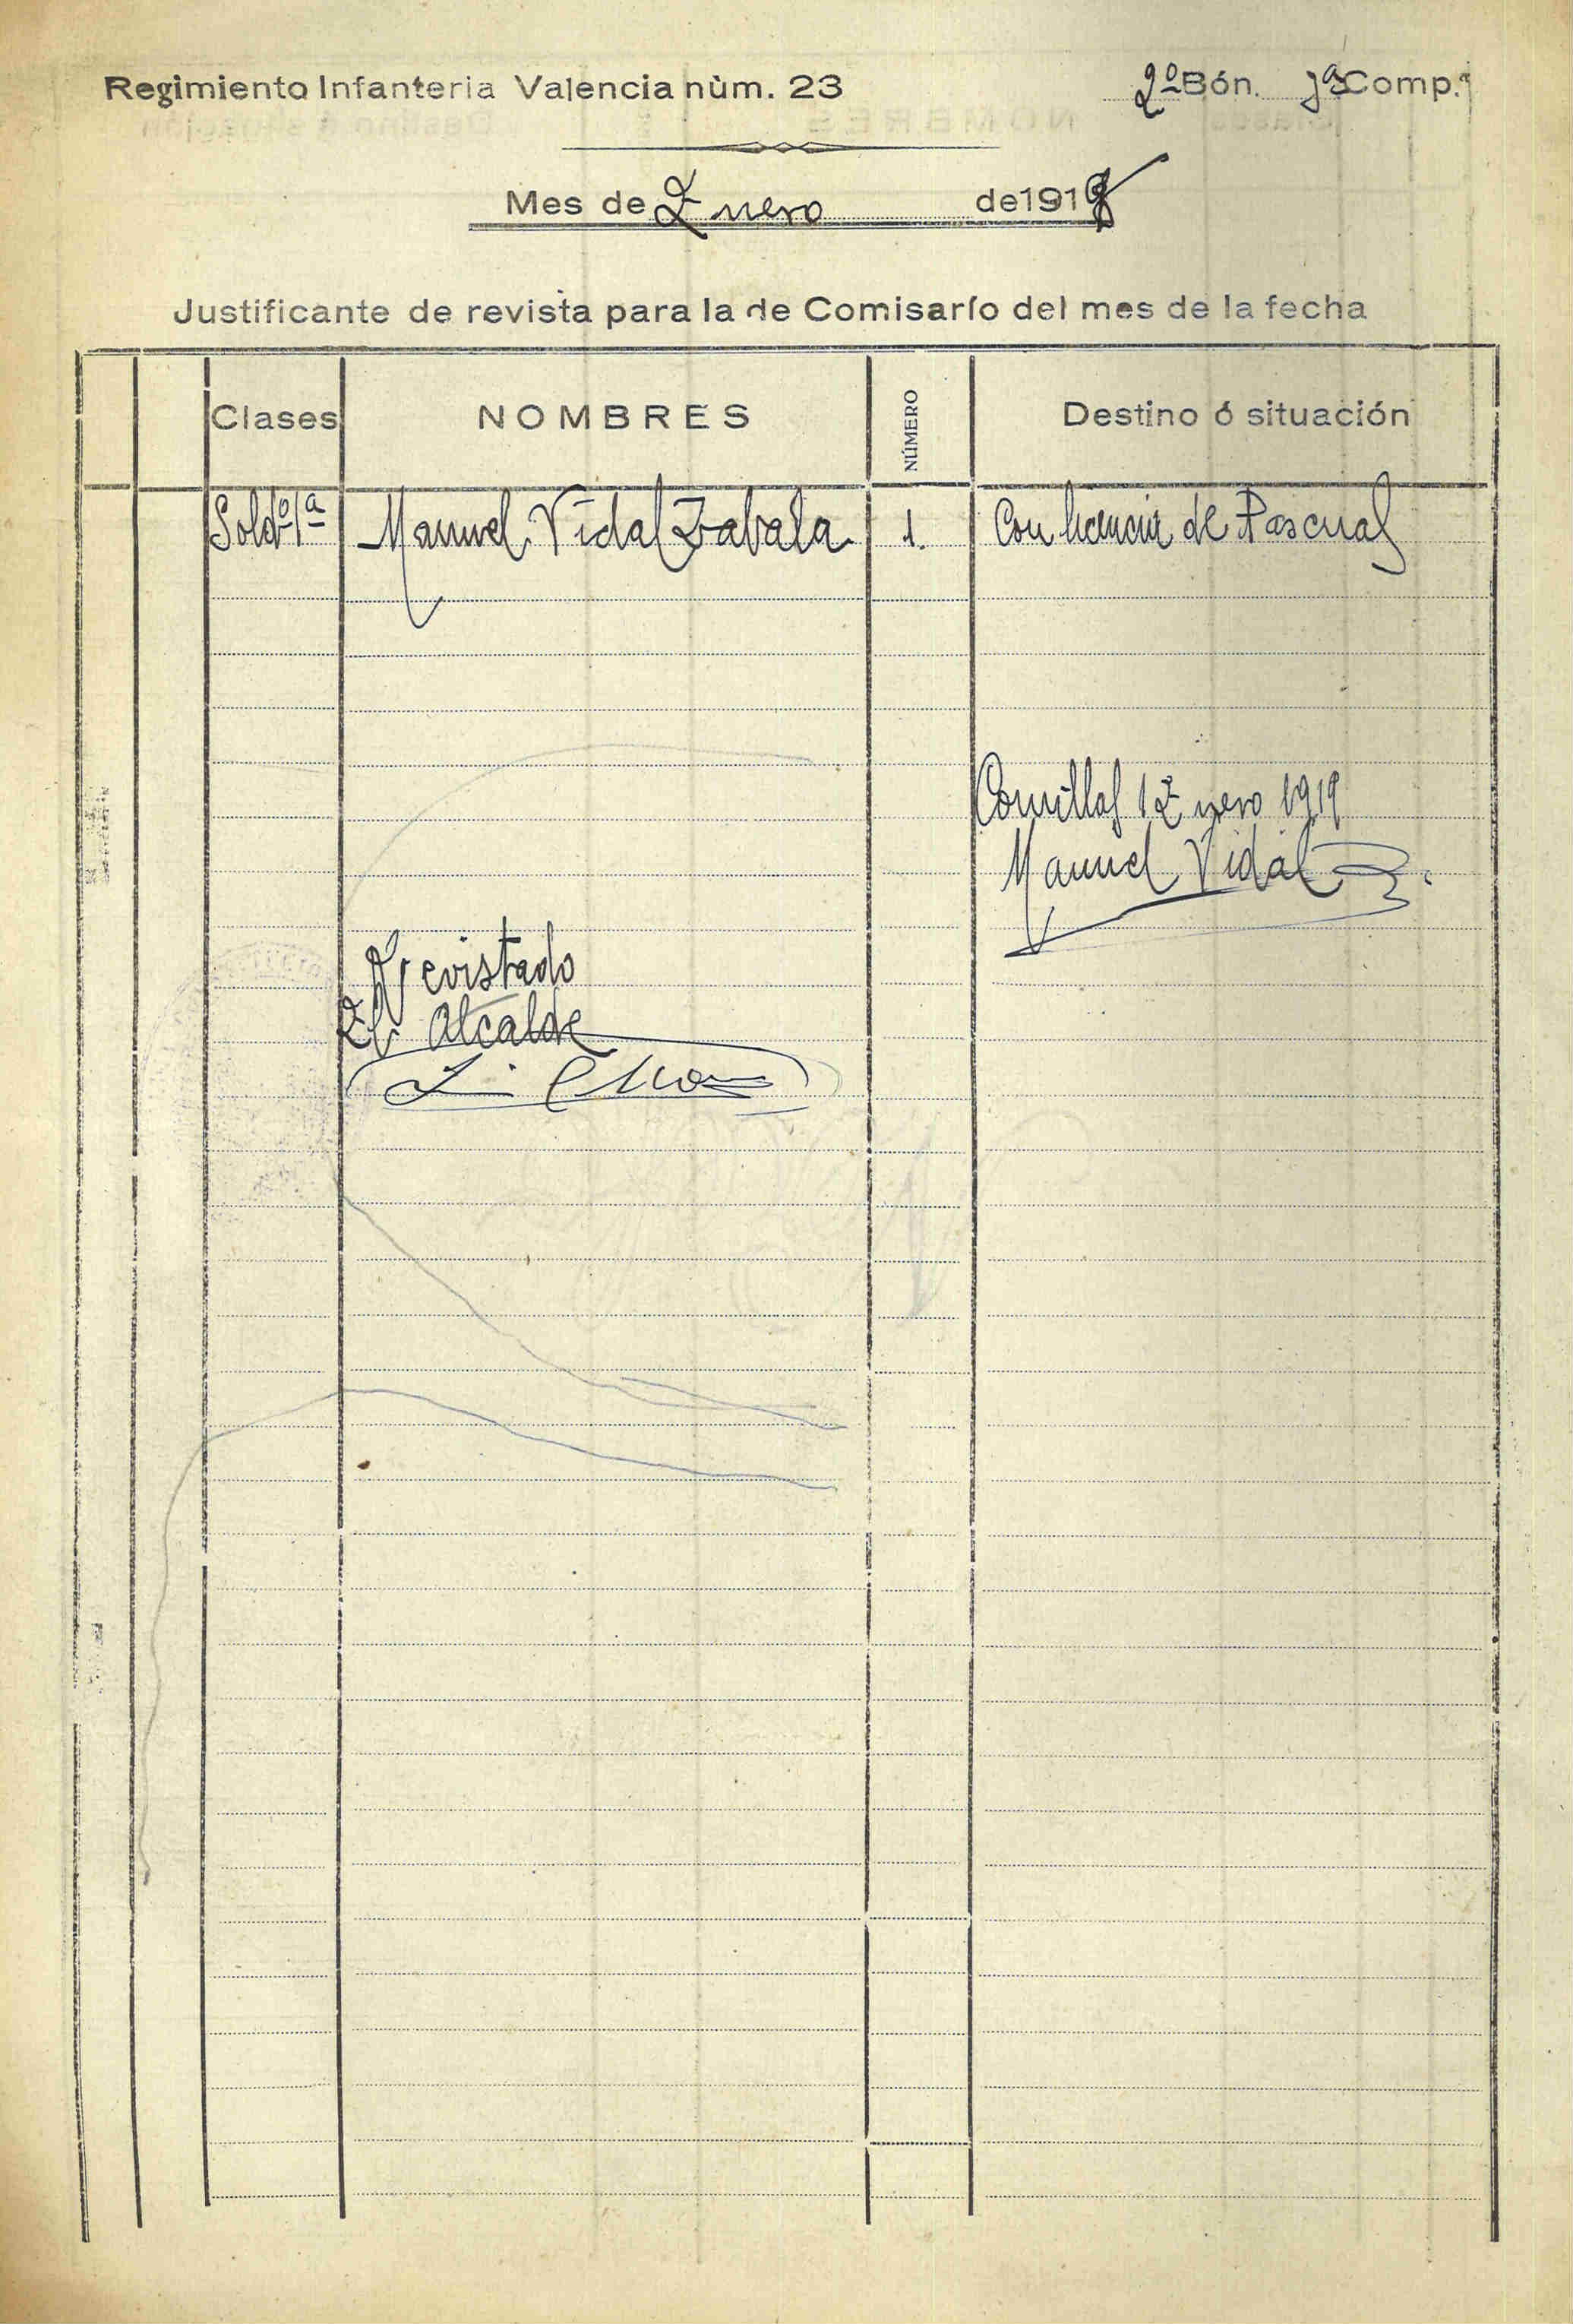 Regimiento Infanteria Valencia nùm. 23
2º Bón. 1ª Comp.ª
Mes de Enero de 1919
Justificante de revista para la de Comisarío del mes de la fecha
Clases NOMBRES NÚMERO Destino ó situación
Soldº 1ª Manuel Vidal Zabala 1. Con licencia de Pascuas
Comillas 1 Enero 1919
Manuel Vidal
Revistado
El Alcalde